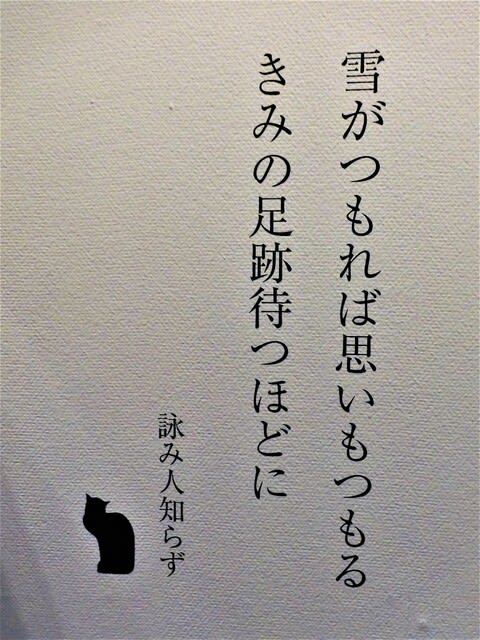 雪がつもれば思いもつもる
きみの足跡待つほどに
詠み人知らず